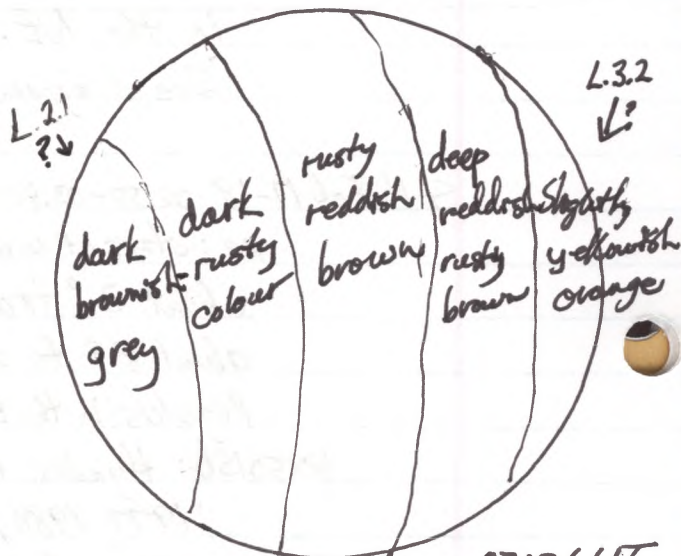 L.2.1
?
L.3.2
?
dark
brownish-
grey
dark
rusty
colour
rusty
reddish
brown
deep
reddish
rusty
brown
Slightly
yellowish
orange